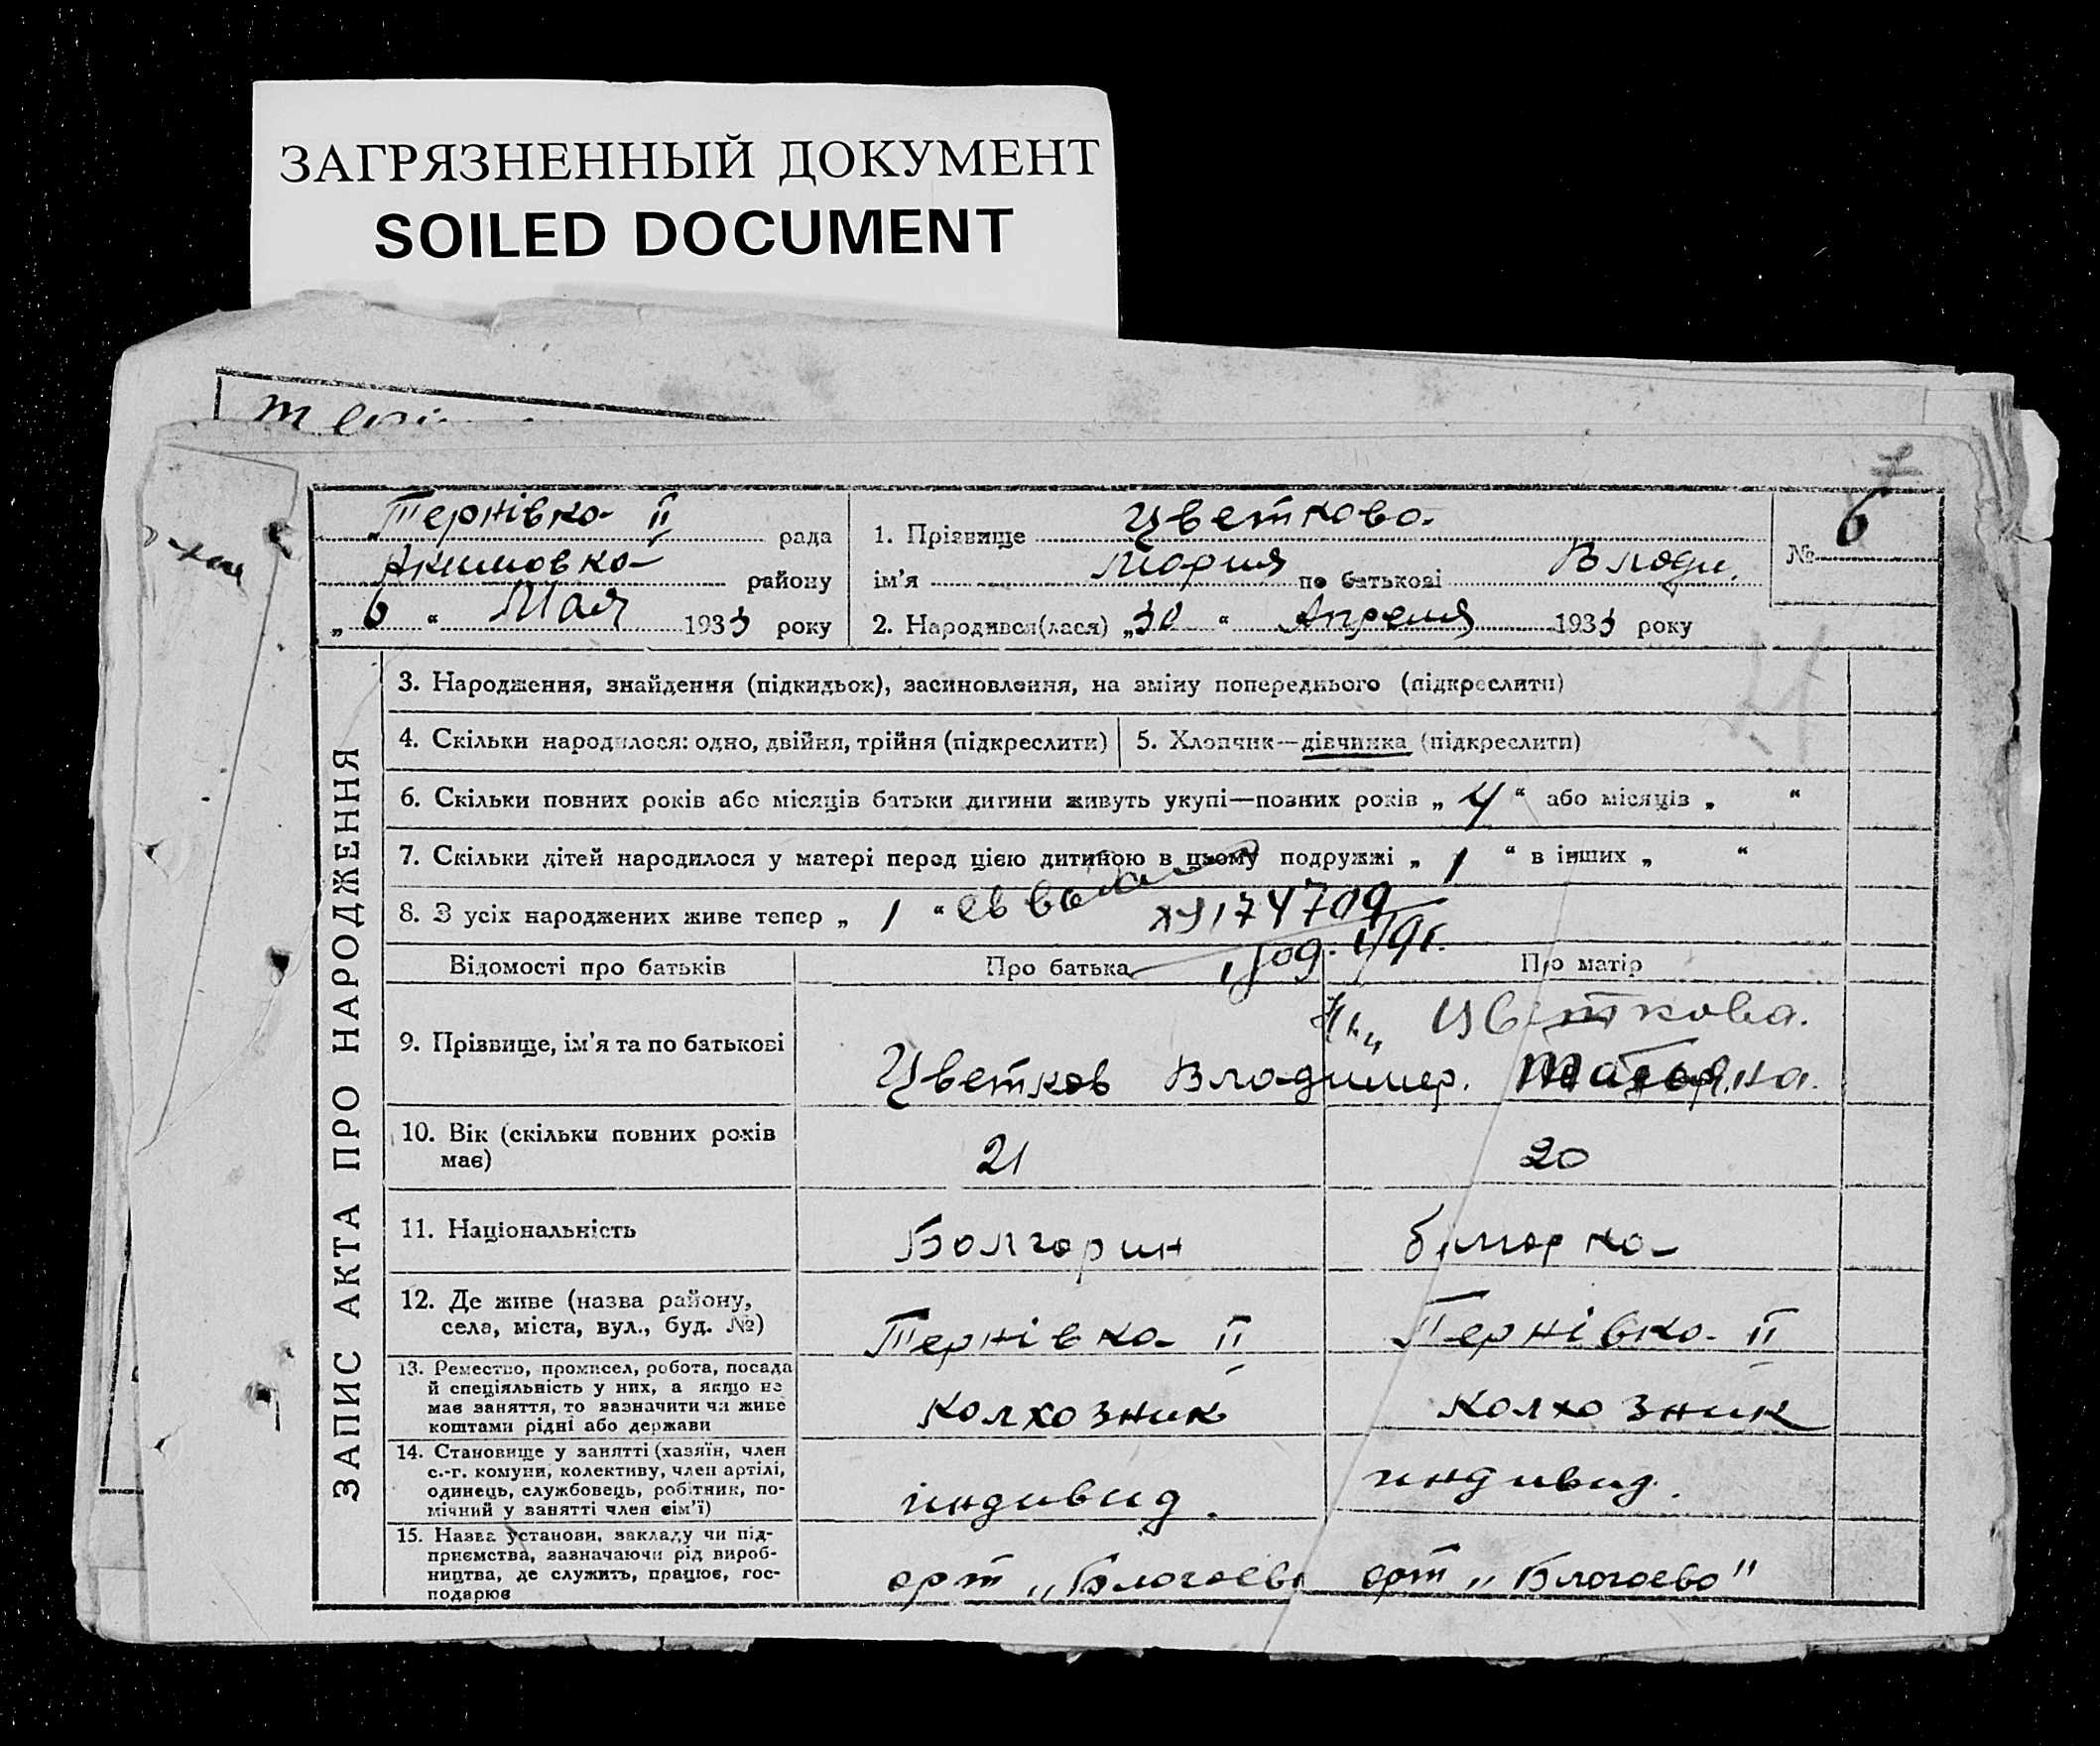 ЗАГРЯЗНЕННЫЙ ДОКУМЕНТ
SOILED DOCUMENT
Тернівка II рада
Акимовка району
„ 6 “ Мая 1933 року
1. Прізвище Цветкова
ім'я Мария по батькові Влади.
2. Народився(лася) „30 “ Апреля 1933 року
№ 6
ЗАПИС АКТА ПРО НАРОДЖЕННЯ
3. Народження, знайдення (підкидьок), засиновлення, на зміну попереднього (підкреслити)
4. Скільки народилося: одно, двійня, трійня (підкреслити)
5. Хлопчик—дівчинка (підкреслити)
6. Скільки повних років або місяців батьки дитини живуть укупі—повних років „ 4 “ або місяців „ “
7. Скільки дітей народилося у матері перед цією дитиною в цьому подружжі „ 1 “ в інших „ “
8. З усіх народжених живе тепер „ 1 “
Відомості про батьків Про батька Про матір
9. Прізвище, ім'я та по батькові
Цветков Владимер.
Цветкова.
10. Вік (скільки повних років
має)
21
20
11. Національність
Болгарин
12. Де живе (назва району,
села, міста, вул., буд. №)
Тернівка II
Тернівка II
13. Ремество, промисел, робота, посада
й спеціяльність у них, а якщо не
має заняття, то зазначити чи живе
коштами рідні або держави
колхозник
колхозник
14. Становище у занятті (хазяїн, член
с.-г. комуни, колективу, член артілі,
одинець, службовець, робітник, по-
мічний у занятті член сім'ї)
индивид.
индивид.
15. Назва установи, закладу чи під-
приємства, зазначаючи рід вироб-
ництва, де служить, працює, гос-
подарює
арт „Благоев
арт „Благоево"